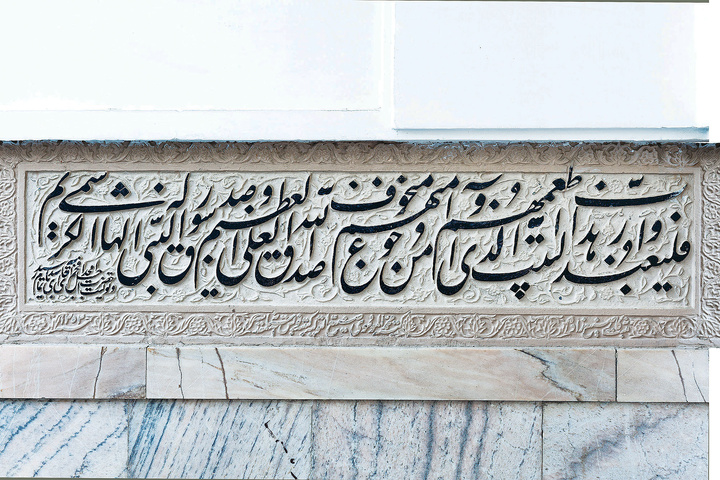 فلیعبدوا رب هذا البیت الذی اطعمهم من جوع و آمنهم من خوف صدق الله العلی العظیم و صدق رسوله النبی الهاشمی الکریم